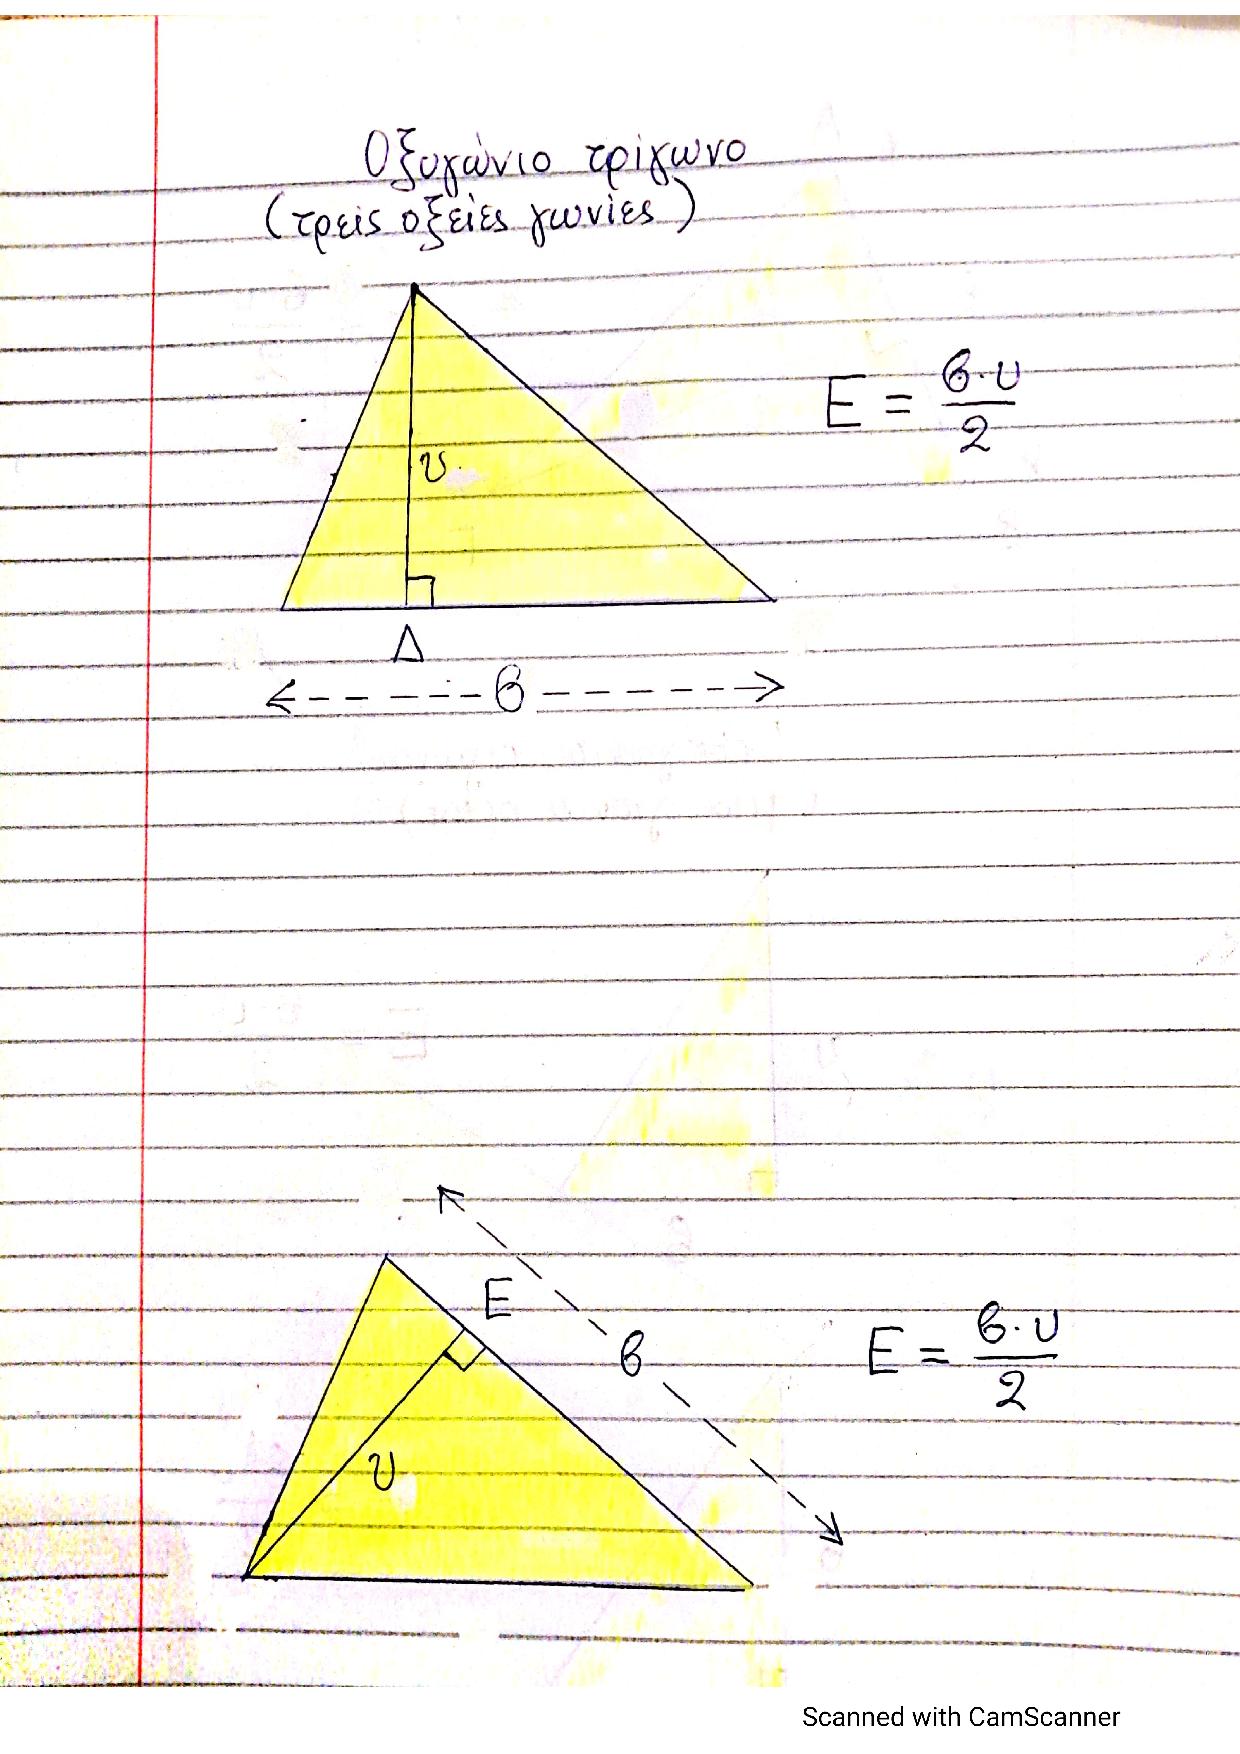 Οξυγώνιο τρίγωνο
(τρεις οξείες γωνίες)
E = β·υ/2
υ
Δ
β
E
β
E = β·υ/2
υ
Scanned with CamScanner